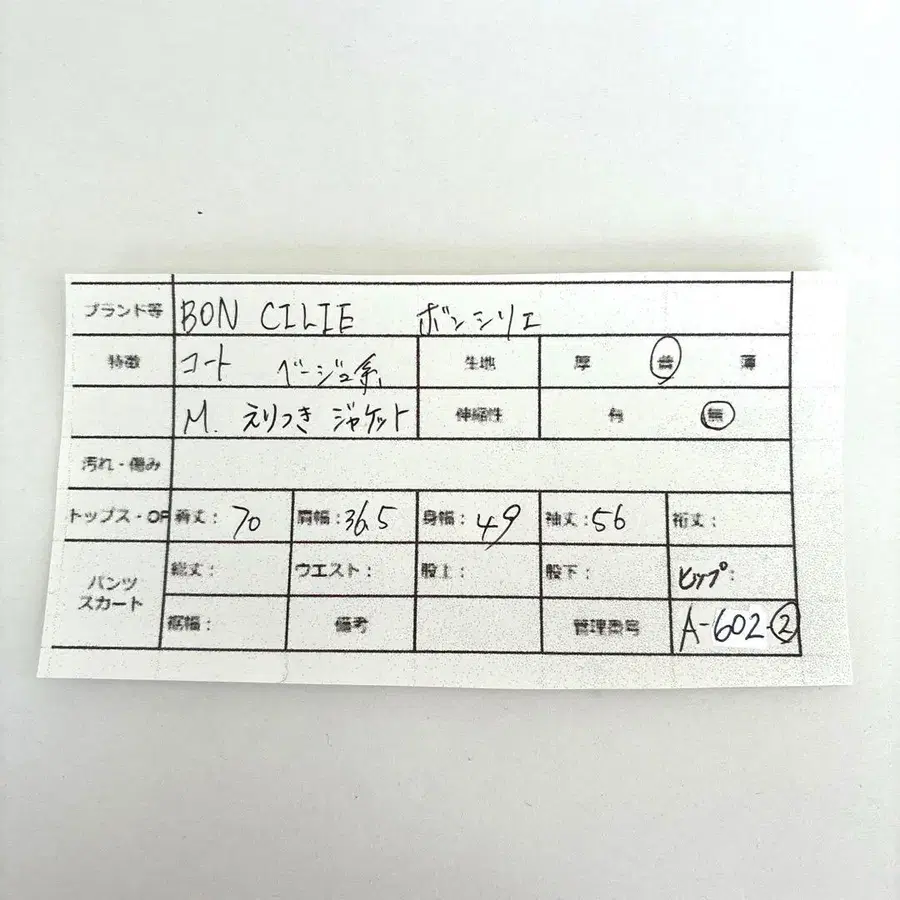 ブランド等 BON CILIE ボンシリエ
特徴 コート ベージュ系 生地 厚 普 薄
M. えりつき ジャケット 伸縮性 有 無
汚れ・傷み
トップス・OP 着丈: 70 肩幅: 36.5 身幅: 49 袖丈: 56 裄丈:
パンツ スカート 総丈: ウエスト: 股上: 股下: ヒップ:
裾幅: 備考 管理番号 A-602-②